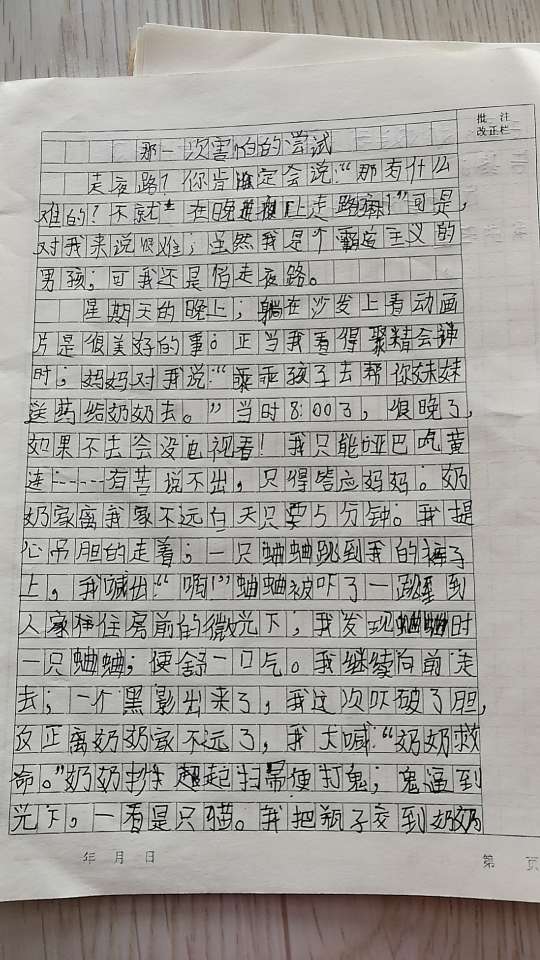 批 注
改正栏
那一次害怕的尝试
走夜路?你肯定会说:“那有什么
难的?不就 在晚 上走路嘛!”可是,
对我来说很难;虽然我是个霸道主义的
男孩;可我还是怕走夜路。
星期天的晚上;躺在沙发上看动画
片是很美好的事。正当我看得聚精会神
时;妈妈对我说:“乖乖孩子去帮你妹妹
送药给奶奶去。”当时8:00了,很晚了,
如果不去会没电视看!我只能哑巴吃黄
连……有苦说不出,只得答应妈妈。奶
奶家离我家不远白天只要5分钟。我提
心吊胆的走着;一只蛐蛐跳到我的裤子
上,我喊出:“啊!”蛐蛐被吓了一跳 到
人家 住房前的微光下;我发现蛐蛐时
一只蛐蛐;便舒一口气。我继续向前走
去;一个黑影出来了,我这次吓破了胆,
反正离奶奶家不远了,我大喊:“奶奶救
命。”奶奶抄起扫帚便打鬼;鬼逼到
光下,一看是只猫。我把瓶子交到奶奶
年 月 日
第 页